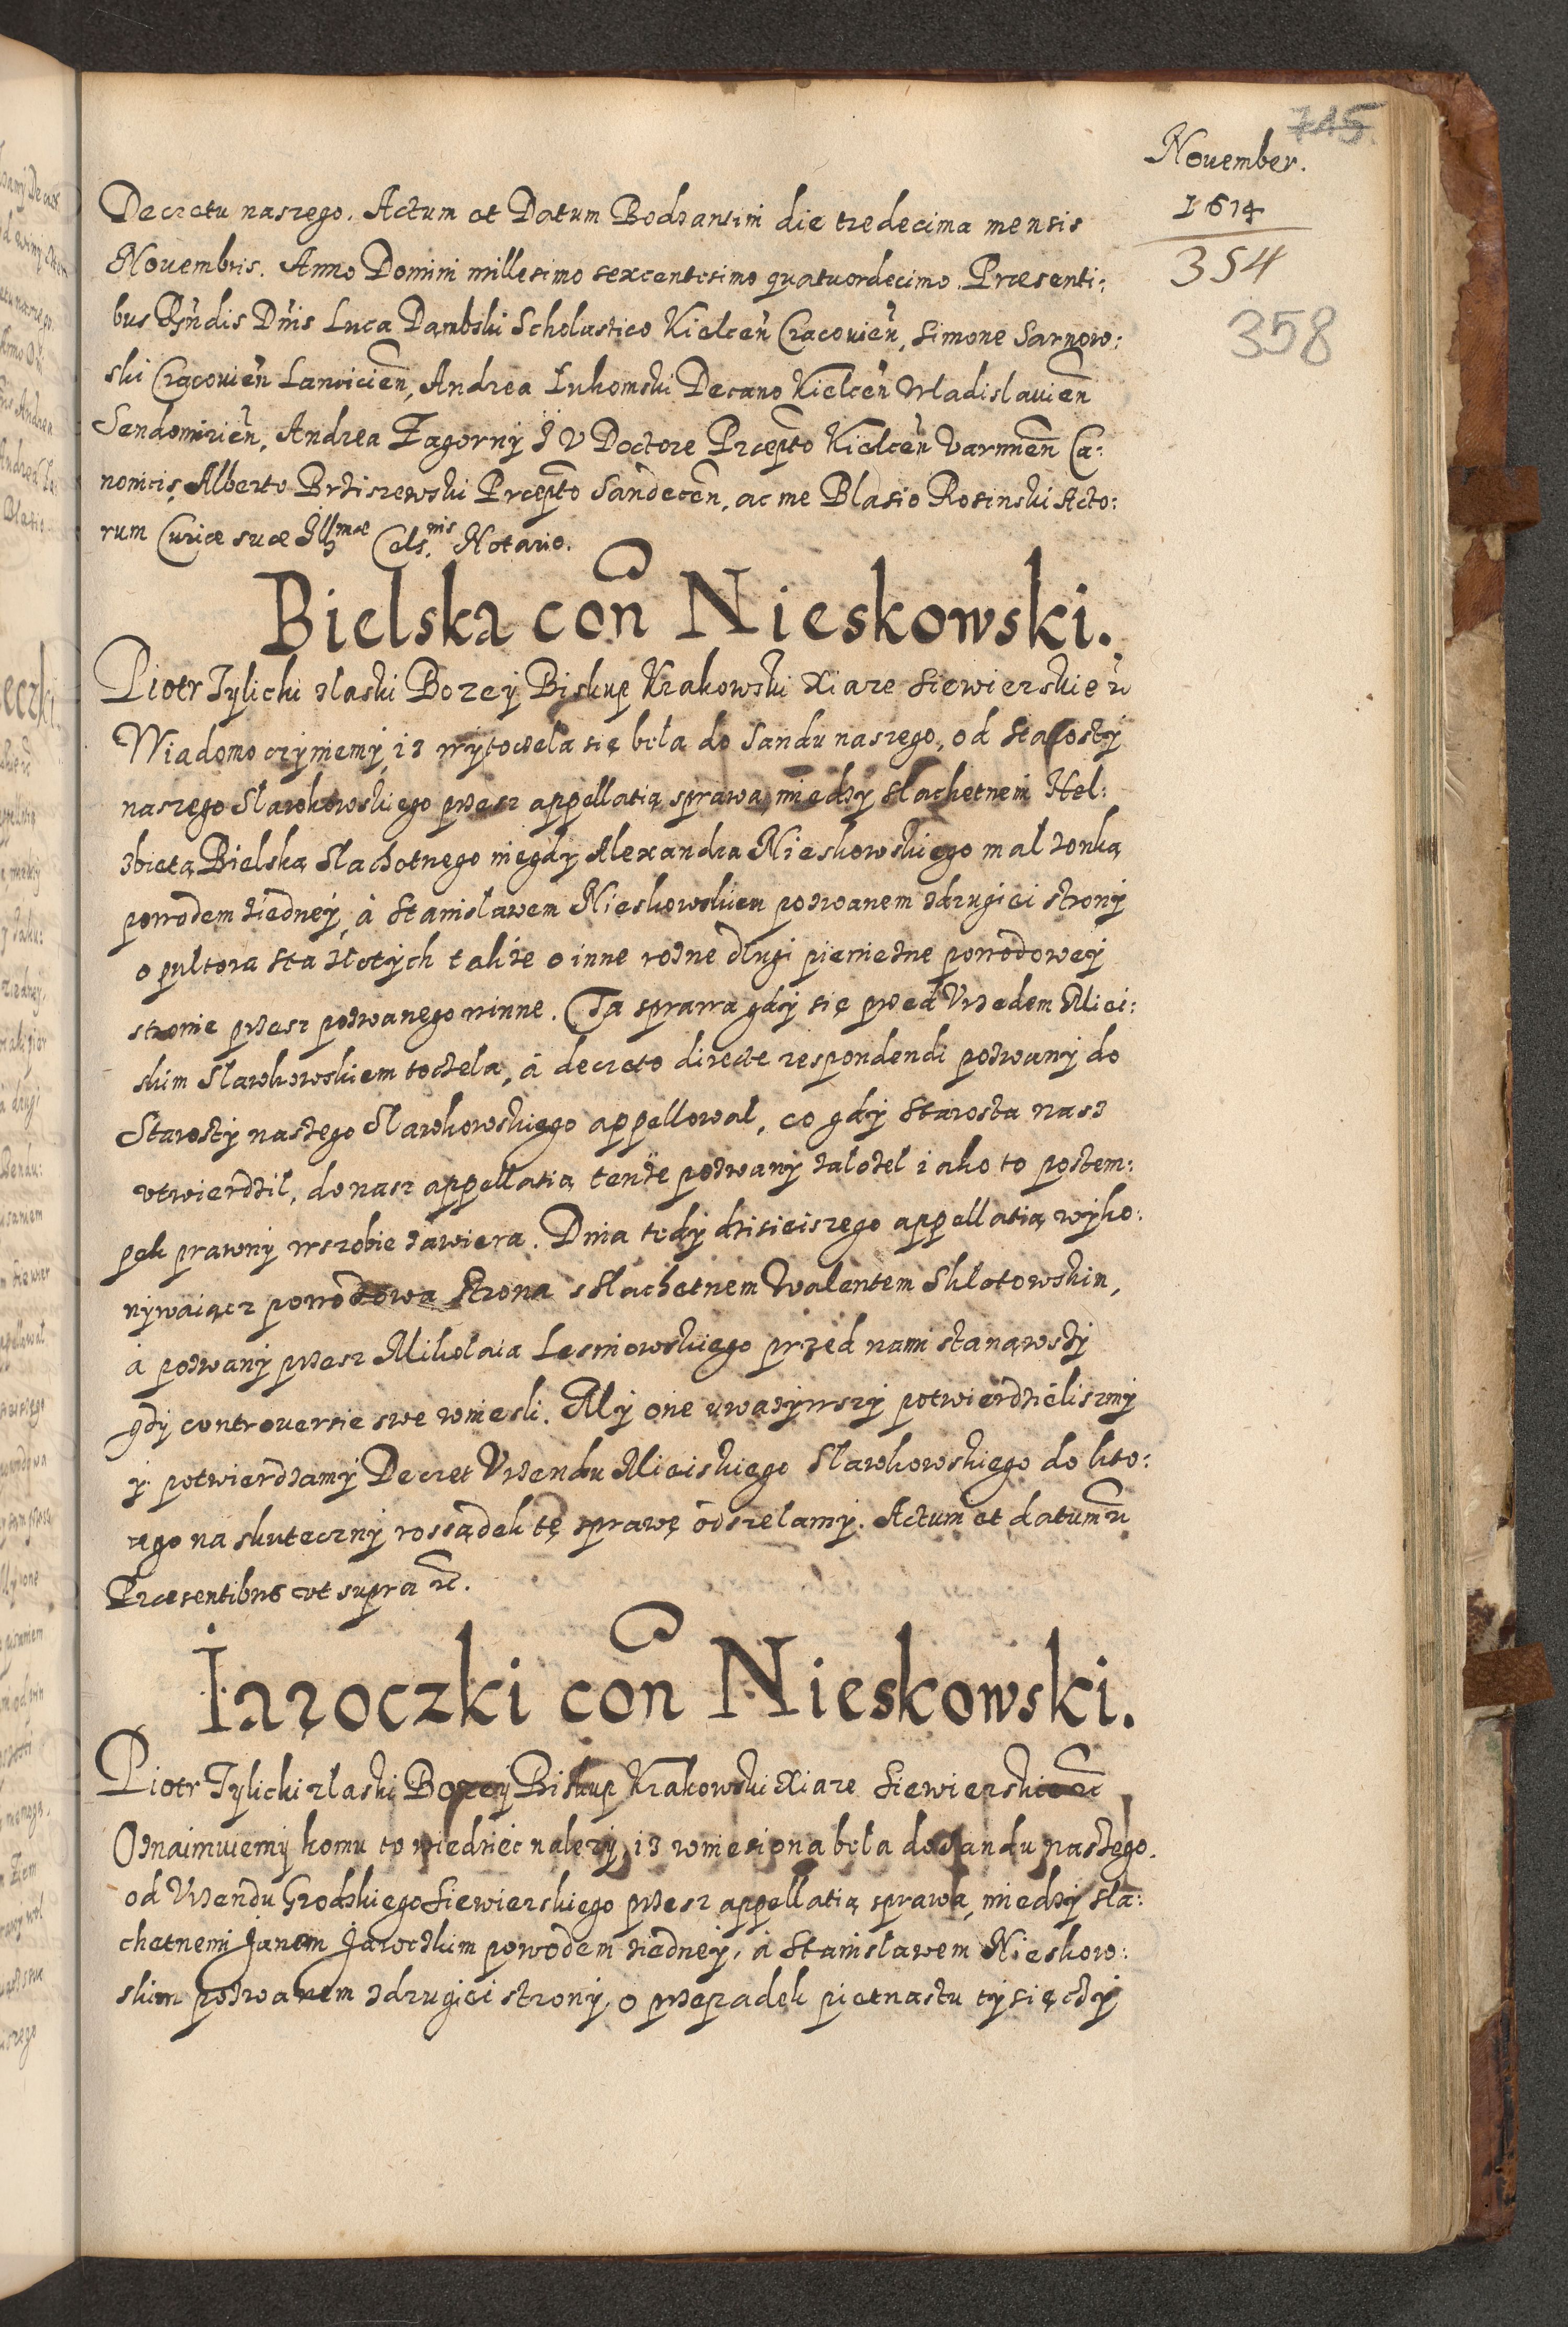 715
November.
1614
354
358
Decretu naszego. Actum et Datum Bodzantini die tredecima mensis
Novembris. Anno Domini millesimo sexcentesimo quatuordecimo. Præsenti:
bus Rndis Dnis Luca Dambski Scholastico Kielcen Cracovien, Simone Sarnow:
ski Cracovien Lancicien, Andrea Lukomski Decano Kielcen Wladislavien
Sendomirien, Andrea Zagorny I V Doctore Præpto Kielcen Varmien Ca:
nonicis, Alberto Brdiszewski Præpto Sandecen, ac me Blasio Rosinski Acto:
rum Curiæ suæ Illmæ Cels.nis Notario.
Bielska con Nieskowski.
Piotr Tylicki zlaski Bozey Biskup Krakowski Xiaze Siewierskie &c
Wiadomo czyniemy, iz wytoczela się beła do Sandu naszego, od Starosty
naszego Sławkowskiego przesz appellatią sprawa, miedzy slachetnem Hel:
zbietą Bielską Slachetnego niegdy Alexandra Nieskowskiego malzonką
powodem ziedney, à Stanisławem Nieskowskiem pozwanem zdrugiei strony
o pultora sta złotych także o inne rozne długi pieniezne powodowey
stronie przesz pozwanego winne. Ta sprawa gdy się przed Vrzedem Miei:
skim Sławkowskiem toczela, à decreto directe respondendi pozwany do
Starosty naszego Sławkowskiego appellował, co gdy Starosta nasz
vtwierdził, do nasz appellatią tenże pozwany założeł iako to postem:
pek prawny wszobie zawiera. Dnia tedy dzisieiszego appellatią wyko:
nywaiącz powodowa Strona s Slachetnem Walentem Skłotowskin,
à pozwany przesz Mikolaia Lesniowskiego przed nami stanąwszy
gdy controversie swe wniesli. My one uwazywszy potwierdzieliszmy
y potwierdzamy Decret Vrzendu Mieiskiego Sławkowskiego do kto:
rego na skuteczny rossądek tę sprawę odszelamy. Actum et datum &c
Præsentibus vt supra &c.
Iaroczki con Nieskowski.
Piotr Tylicki zlaski Bozey Biskup Krakowski Xiaze Siewierskie &c
Oznaimuiemy komu to wiedziec nalezy, iz wniesiona beła do Sandu naszego.
od Vrzendu Grodzkiego Siewierskiego przesz appellatią sprawa, miedzy sla:
chetnemi Janem Jaroczkim powodem ziedney, à Stanisławem Nieskow:
skim pozwanem zdrugiei strony, o przepadek pietnastu tysięczy